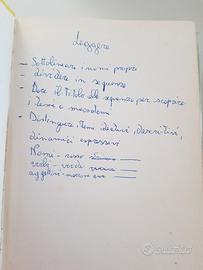 Leggere
- Sottolineare i nomi propri
- dividere in sequenze
- Dare il titolo alle sequenze per scoprire
i temi e
- Distinguere temi descrittivi,
dinamici espressivi
Nomi - rosso
verbi - verde
aggettivi - marrone
Subito.it